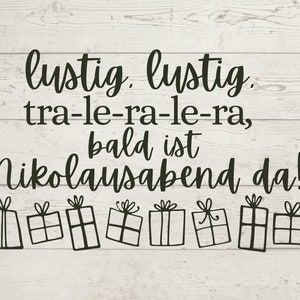 lustig, lustig,
tra-le-ra-le-ra,
bald ist
Nikolausabend da!